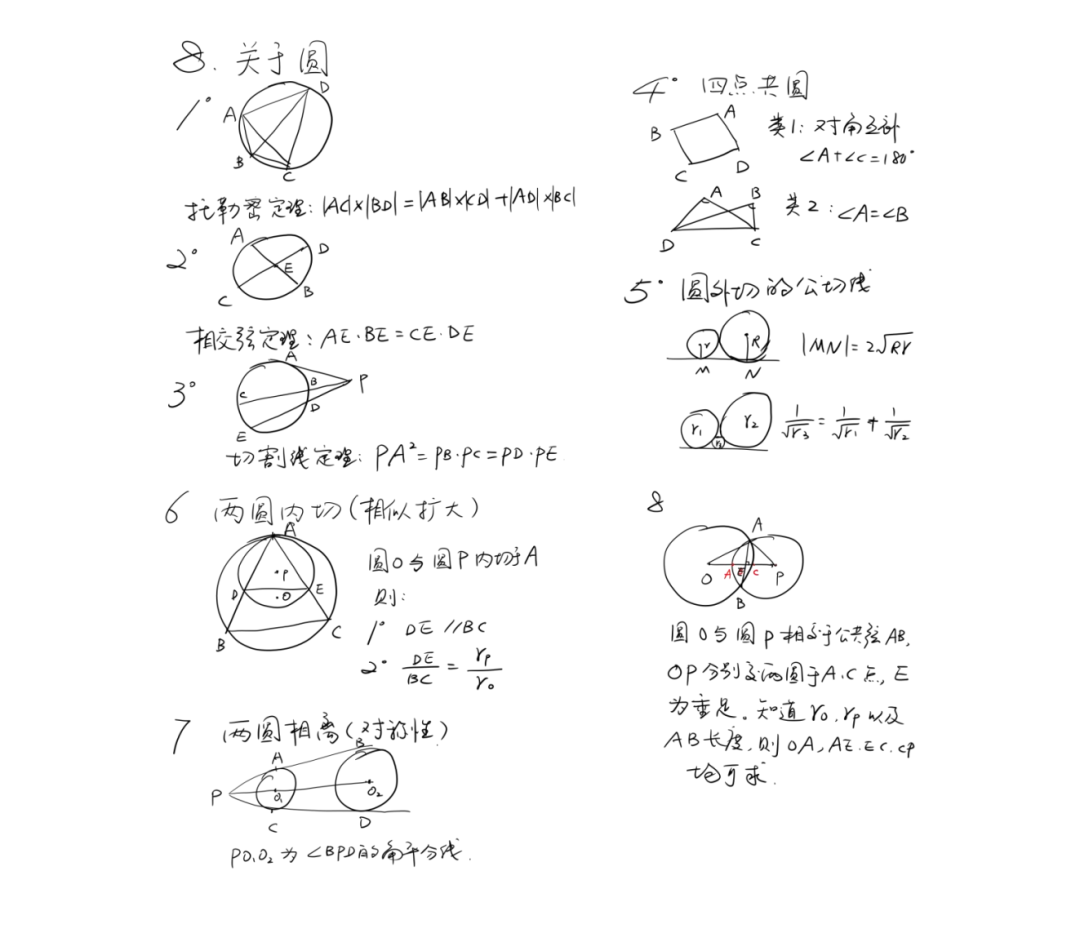 8. 关于圆
1°
A
D
B
C
托勒密定理: |AC|×|BD|=|AB|×|CD|+|AD|×|BC|
2°
A
D
E
C
B
相交弦定理: AE·BE=CE·DE
3°
A
B
P
C
D
E
切割线定理: PA²=PB·PC=PD·PE
4° 四点共圆
A
B
C
D
类1: 对角互补
∠A+∠C=180°
A
B
D
C
类2: ∠A=∠B
5° 圆外切的公切线
r
R
M
N
|MN|=2√Rr
r₁
r₂
r₃
1/√r₃ = 1/√r₁ + 1/√r₂
6 两圆内切(相似扩大)
A
P
D
O
E
B
C
圆O与圆P内切于A
则:
1° DE//BC
2° DE/BC = rP/rO
7 两圆相离(对称性)
A
B
P
O₁
O₂
C
D
PO₁O₂为∠BPD的角平分线.
8
A
O
A
E
C
P
B
圆O与圆P相交于公共弦AB,
OP分别交两圆于A.C点, E
为垂足。知道rO, rP以及
AB长度, 则OA, AE. EC. CP
均可求.